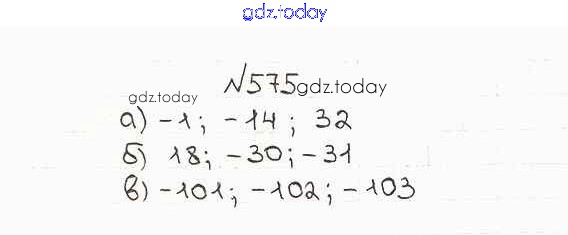 gdz.today
№575 gdz.today
gdz.today
а) -1; -14; 32
б) 18; -30; -31
в) -101; -102; -103